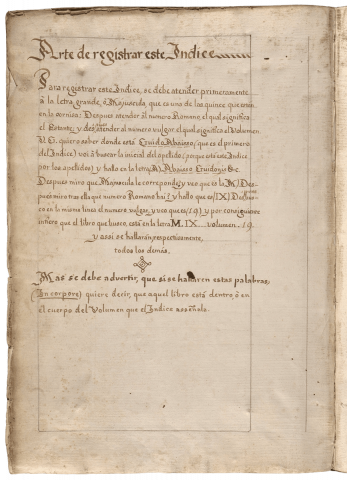 Arte de registrar este Indice
Para registrar este Indice, se debe atender primeramente
à la letra grande, ò Mayuscula, que es una de las quince que estan
en la cornisa: Despues atender al numero Romano, el qual significa
el Estante; y despues atender al numero vulgar, el qual significa el Volumen.
V. G. quiero saber donde està Guido Abaisso; (que es el primero
del Indice) voi à buscar la inicial del apellido; (porque està este Indice
por los apellidos) y hallo en la letra (A) Abaisso Guidonis &c.
Despues miro que Mayuscula le corresponde; y veo que es la (M) Des-
pues miro tras ella que numero Romano hai? y hallo que es (IX) Despues
veo en la misma linea el numero vulgar, y veo que es (19) y por consiguiente
infiero que el libro que busco, està en la letra M. IX. volumen. 19.
y assi se hallaràn respectivamente,
todos los demàs.
Mas se debe advertir, que si se hallaren estas palabras,
(In corpore) quiere decir, que aquel libro està dentro ò en
el cuerpo del Volumen que el Indice asseñala.